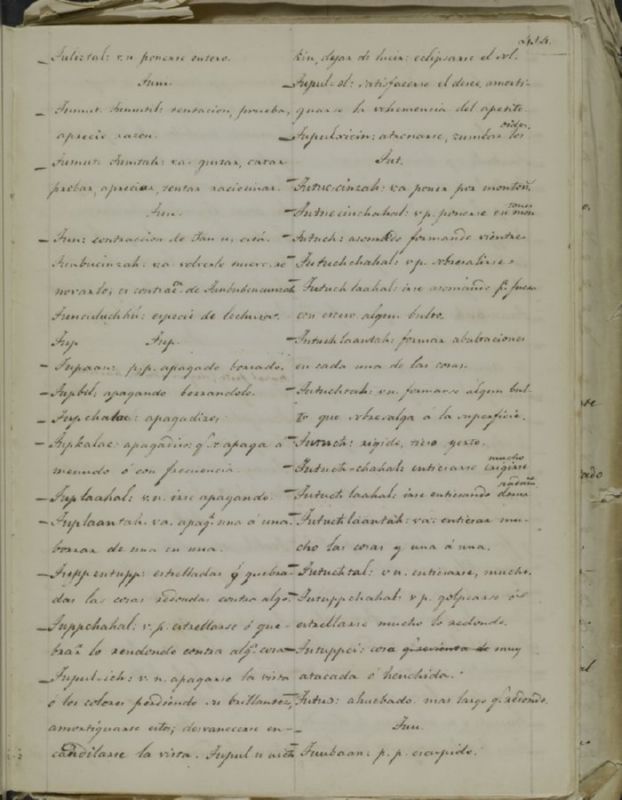 414.
Tuliztal: v.n ponerse entero.
Tum.
Tumut. Tumutil: tentacion, prueba,
aprecio razon.
Tumut. Tumtah: va. gustar, catar
probar, apreciar, tentar raciocinar.
Tun.
Tun: contraccion de Tan u, está.
novarlo, es contraccn. de Tunbubencunzah
Tunculuchhú: especie de lechuza.
Tup Tup.
Tupaan: p.p. apagado borrado.
Tupbil, apagando borrandolo.
Tupchalac: apagadizo,
Tupkalac: apagadizo: q.e se apaga á
menudo ó con frecuencia.
Tuplaahal: v.n. irse apagando.
Tuplaantah: va. apagr. una á una.
borrar de una en una.
Tupp entupp: estrelladas ó quebra-
das las cosas redondas contra algo.
Tuppchahal: v.p. estrellarse ó que-
brar. lo rendondo contra algo. cosa
Tupul-ich: v.n. apagarse la vista
ó los colores perdiendo su brillantez,
amortiguarse esto; desvanecerse en-
candilarse la vista. Tupul u uich
kin, dejar de lucir: eclipsarse el sol.
Tupul-ol: satisfacerse el deseo, amorti-
guarse la vehemencia del apetito.
Tupulxicin: atronarse, zumbar los
oidos.
Tut.
Tutuccinzah: va poner por monton.
Tutuccinchahal: v.p. ponerse en mon
tones
Tutuch: asomado formando vientre
Tutuchchahal: v.p. sobresalirse
Tutuchlaahal: irse asomando pr. fuera
con exceso algun bulto.
Tutuchlaantah: formar ababaciones
en cada una de las cosas.
Tutuchtal: v.n. formarse algun bul-
to que sobresalga á la superficie.
Tutuch: rigido, tieso yerto.
Tutuch-chahal: entiesarse mucho
Tutuch laahal: irse entiesando
Tutuch láantáh: va: entiesar mu-
cho las cosas y una á una.
Tutuchtal: v n. entiesarse, mucho.
Tutuppchahal: v p. golpearse ó
estrellarse mucho lo redondo.
Tutuppci: cosa q. revienta de muy
atacada ó henchida.
Tutuz: ahuebado. mas largo q. redondo.
Tuu.
Tuubaan: p. p. escupido.